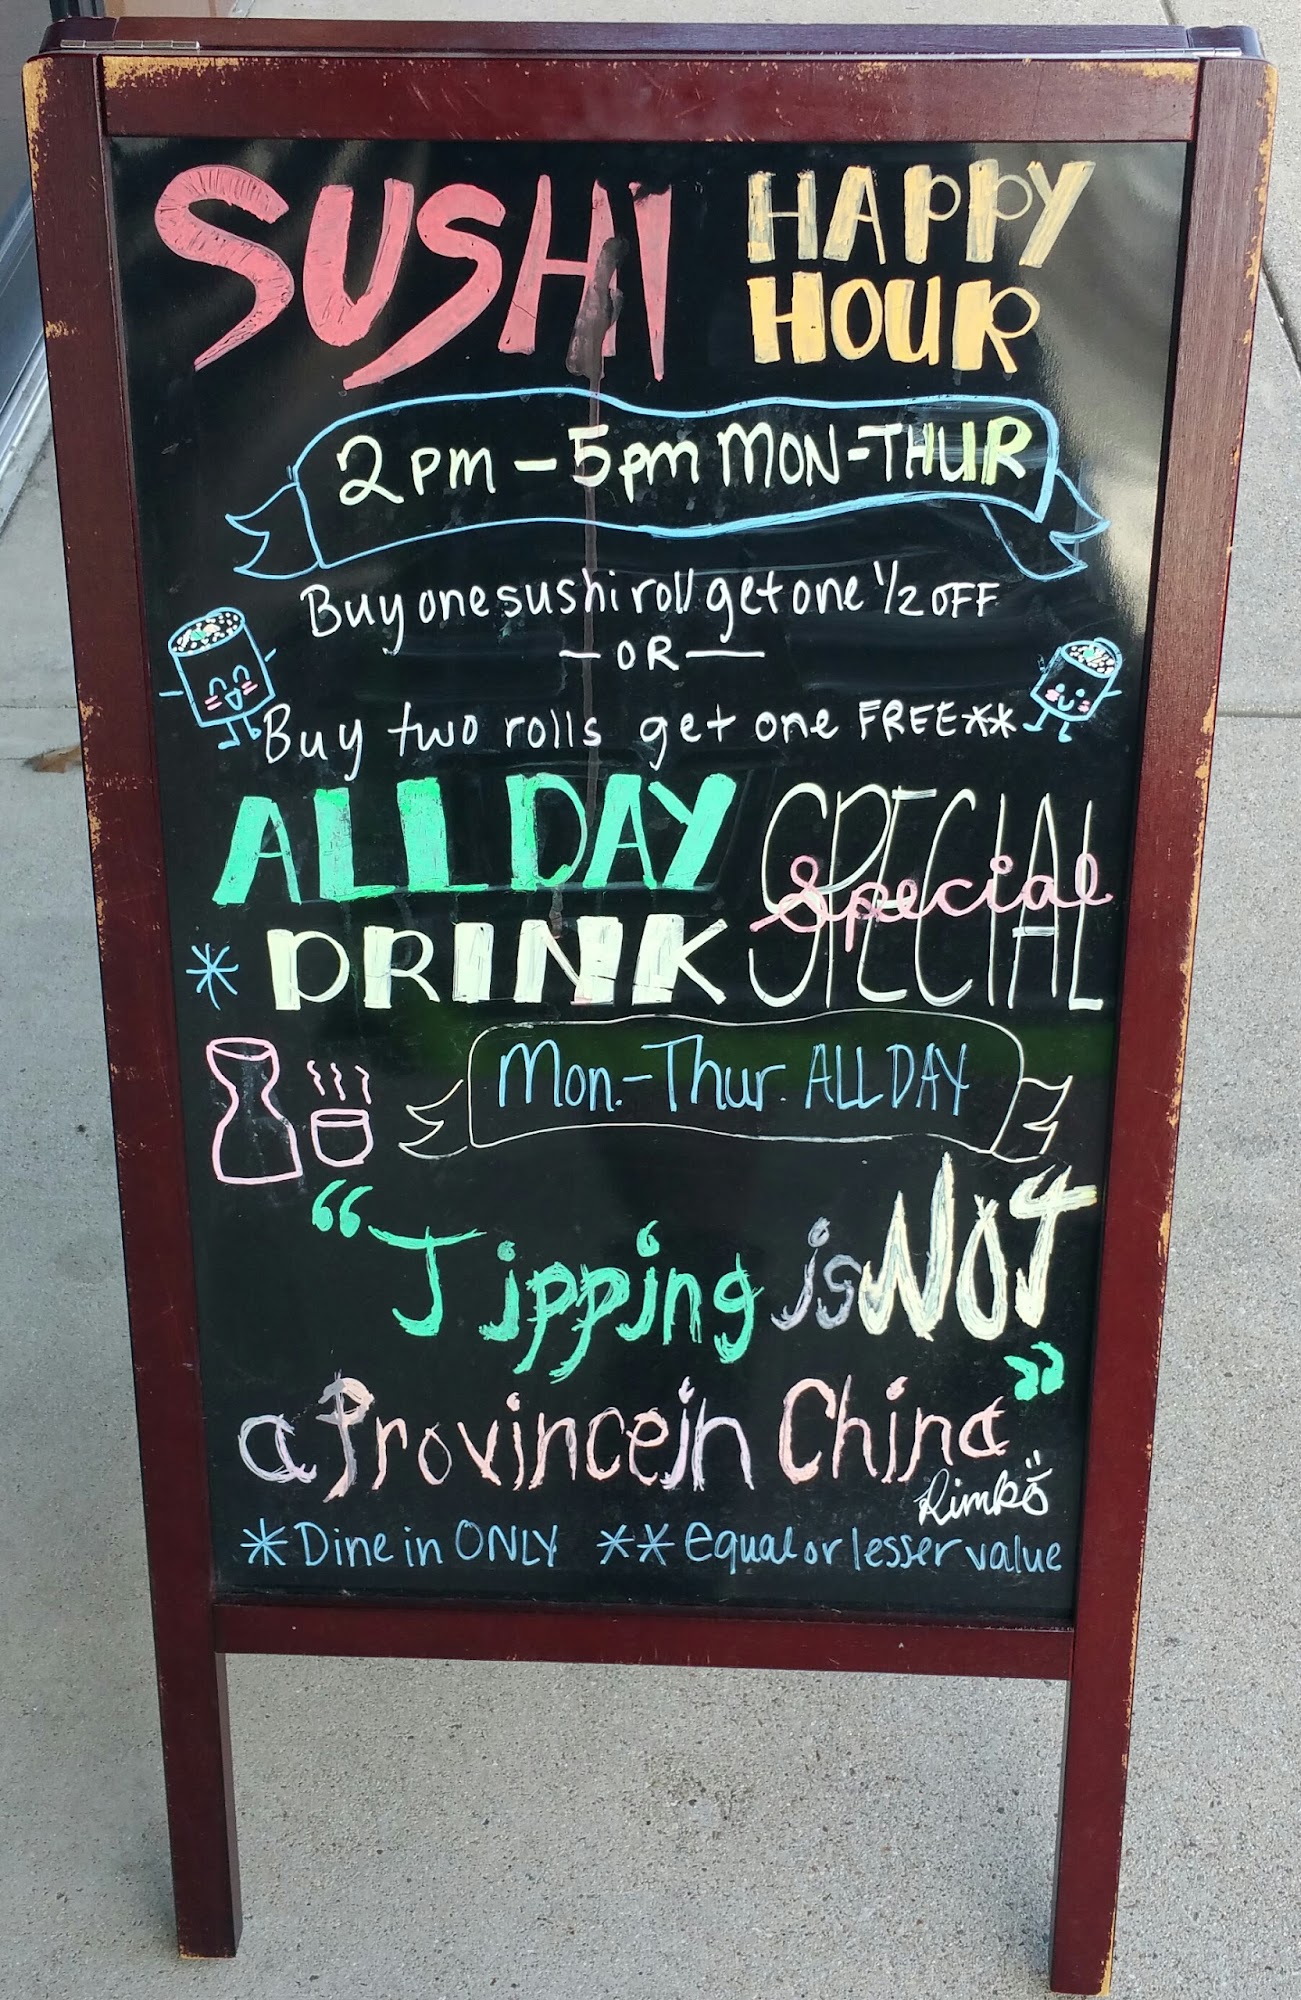 SUSHI HAPPY
HOUR
2pm - 5pm MON-THUR
Buy one sushi roll get one 1/2 OFF
- OR -
Buy two rolls get one FREE**
ALL DAY SPECIAL
Special
* DRINK
Mon.-Thur. ALL DAY
“Tipping is NOT
a Province in China”
*Dine in ONLY **equal or lesser value